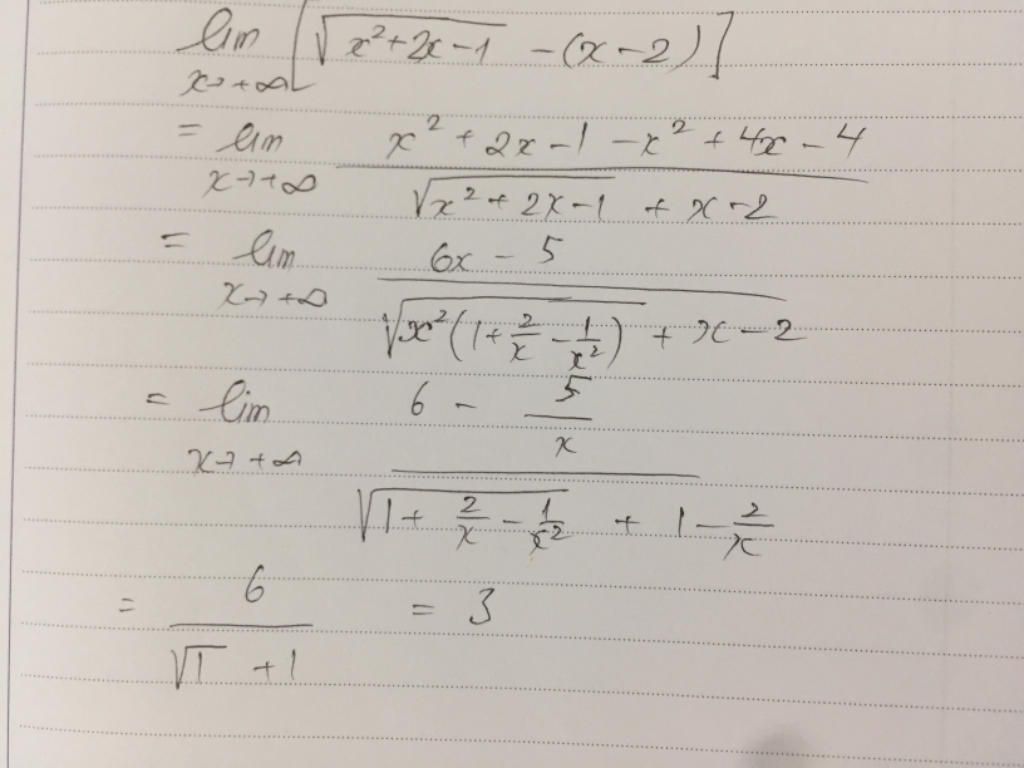 lim x→+∞ [√(x²+2x-1) - (x-2)]
= lim x→+∞ (x²+2x-1-x²+4x-4)/(√(x²+2x-1) + x-2)
= lim x→+∞ (6x-5)/(√(x²(1+2/x-1/x²)) + x-2)
= lim x→+∞ (6-5/x)/(√(1+2/x-1/x²) + 1-2/x)
= 6/(√1+1) = 3